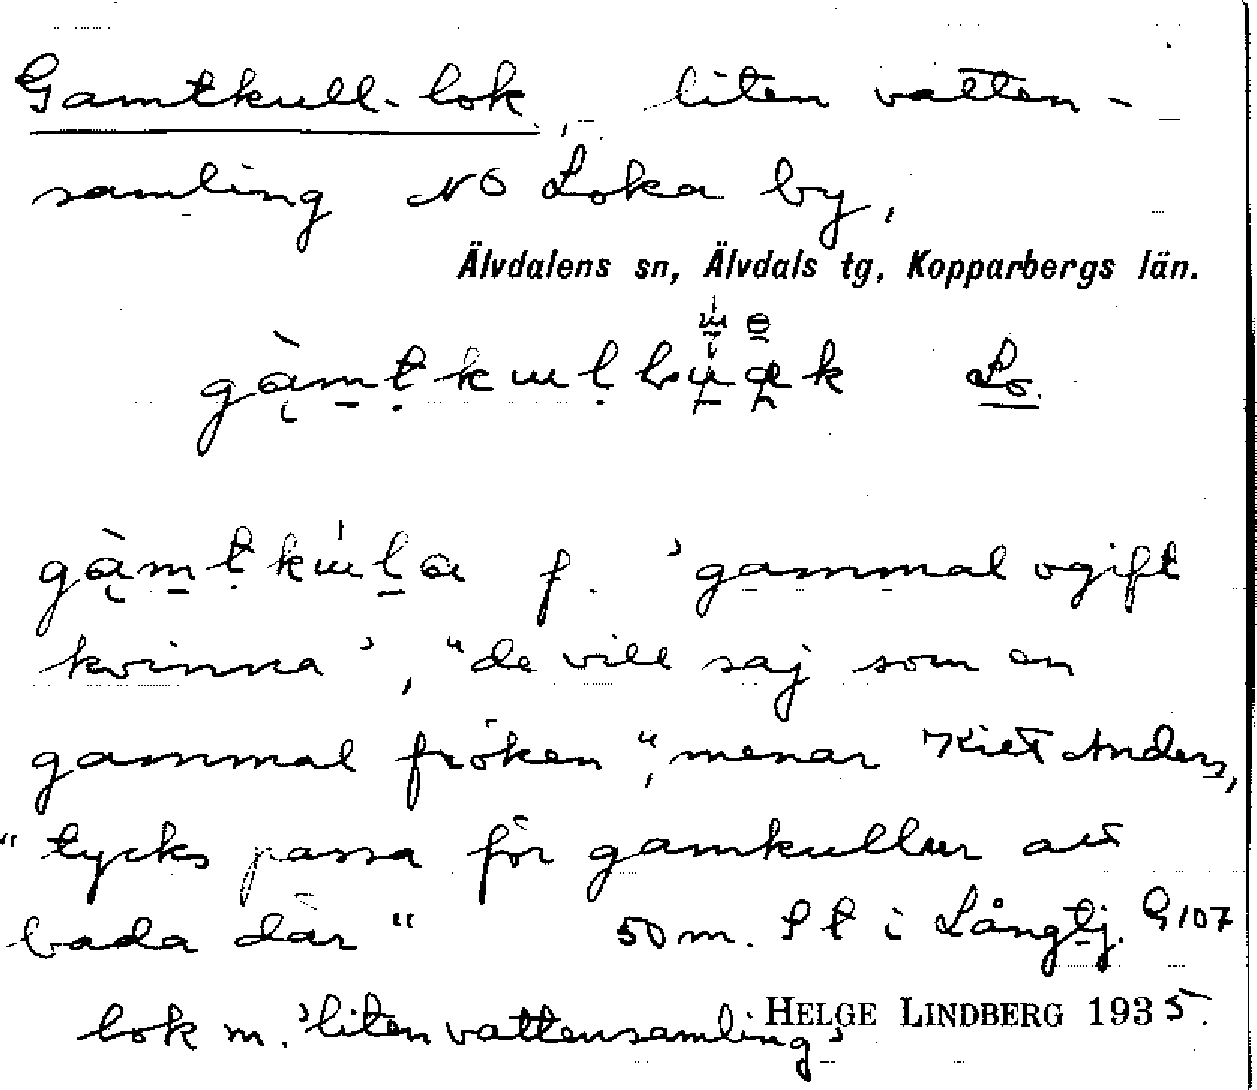 Gamtkull-lok, liten vatten-
samling NO Loka by,
Älvdalens sn, Älvdals tg, Kopparbergs län.
Lo.
f. 'gammal ogift
kvinna', "de vill saj som en
gammal fröken", menar Kiet Anders,
"tycks passa för gamkullur att
bada där" 50 m. i Långtj. G107
lok m. 'liten vattensamling'
HELGE LINDBERG 1935.